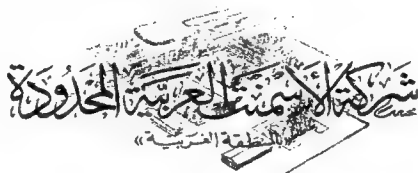 شركة الأسمنت العربية المحدودة
المنطقة الغربية»